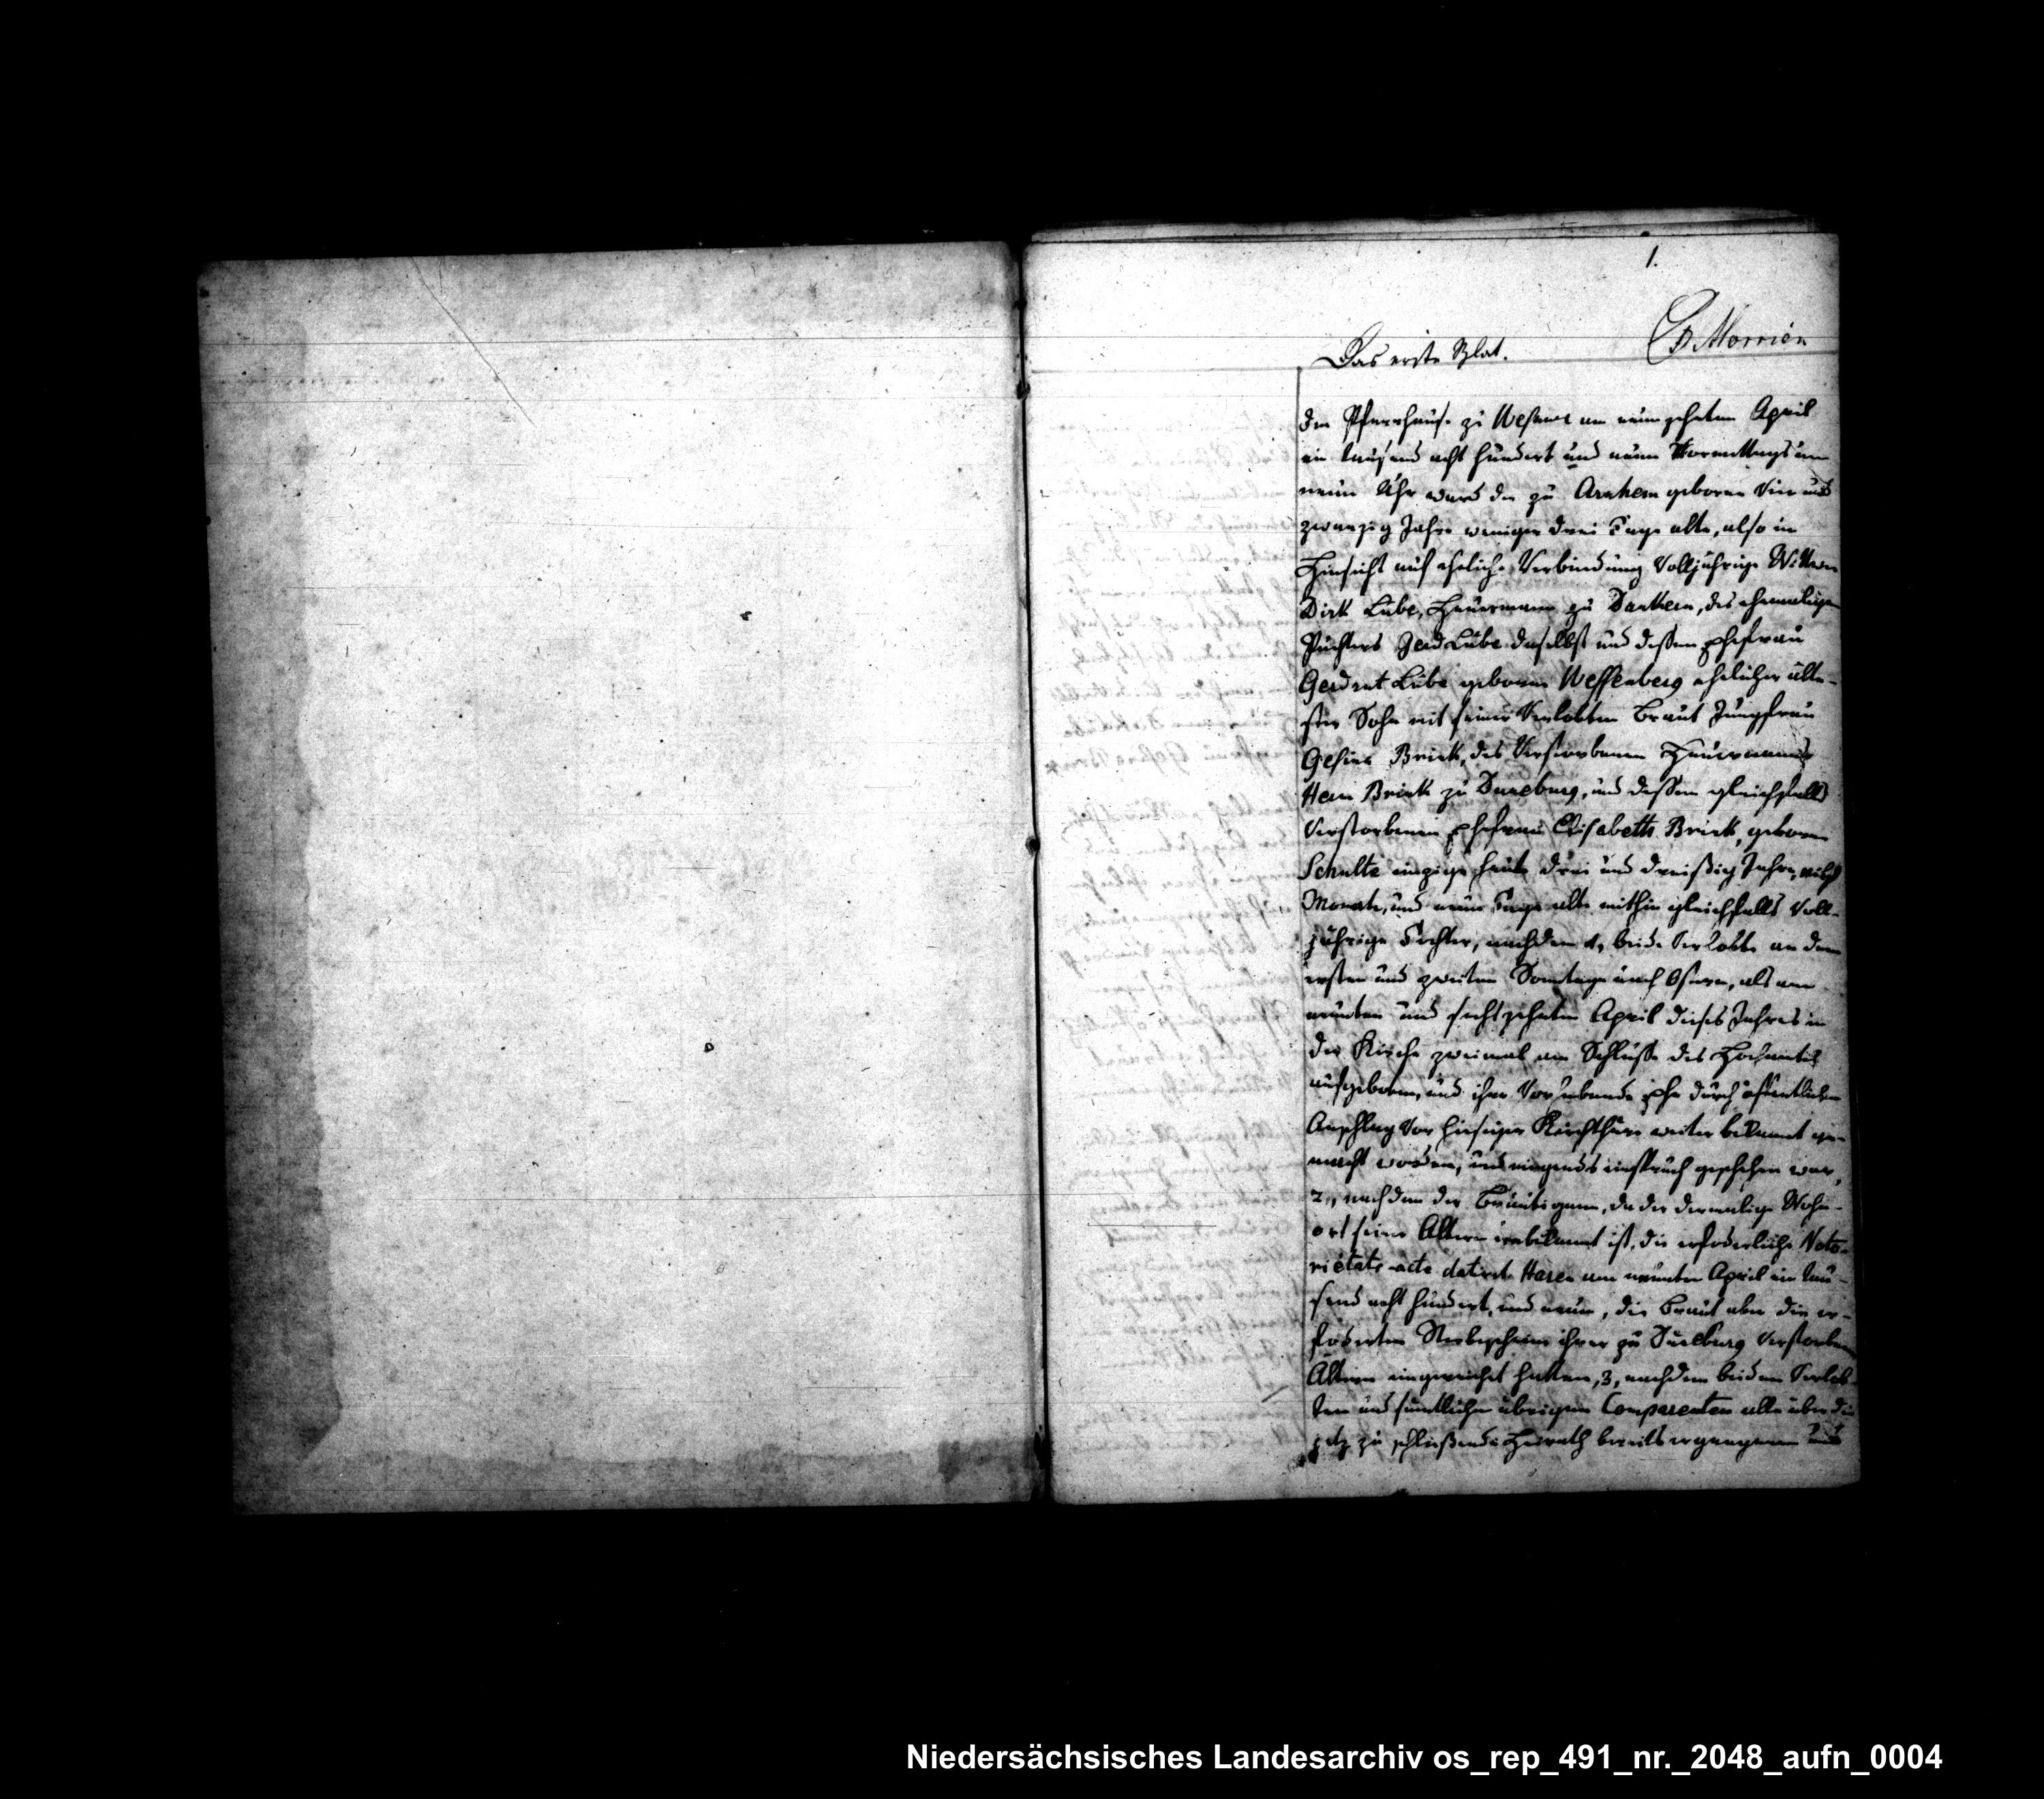 1.
Morrien
Das erste Blat.
Im Pfarrhause zu Wesuwe am neunzehnten April
ein tausend acht hundert und neun Vormittags um
neun Uhr ward der zu geborene Vier und
zwanzig Jahre weniger drei Tage alte, also in
Hinsicht auf eheliche Verbindung Volljährige
Dirk Lübe, Heuermann zu Dankern, des ehemaligen
Pächters Gerd Lübe daselbst und dessen Ehefrau
Lübe geborene ehelicher älte-
ster Sohn mit seiner Verlobten Braut Jungfrau
Gesina Brink, des Verstorbenen Heuermanns
Herm Brink zu und dessen gleichfalls
Verstorbenen Ehefrau Elisabeth Brink, geborne
Schulte einzige heute drei und dreißig Jahre,
Monate, und neun Tage alte mithin gleichfalls Voll-
jährige Tochter, nachdem 1, beide Verlobte an dem
ersten und zweiten Sonntage nach Ostern, als am
neunten und sechszehnten April dieses Jahres in
der Kirche zweimal am Schlusse des Hochamtes
aufgeboten, und ihre Vorhabende Ehe durch öffentlichen
Anschlag Vor hiesiger Kirchthüre weiter bekannt ge-
macht worden, und nirgends einspruch geschehen war,
2, nachdem der Bräutigam, da der dermalige Wohn-
ort seiner Altern unbekannt ist, die erforderliche Noto-
rietäts-acte datirt Haren am neunten April ein tau-
send acht hundert, und neun, die Braut aber die er-
foderten Sterbscheine ihrer zu Verstorbenen
Altern eingereicht hatten, 3, nachdem beiden Verlob-
ten und sämtlichen übrigen Comparenten alle über die
jetz zu schließende Heirath bereits ergangenen und
Niedersächsisches Landesarchiv os_rep_491_nr._2048_aufn_0004